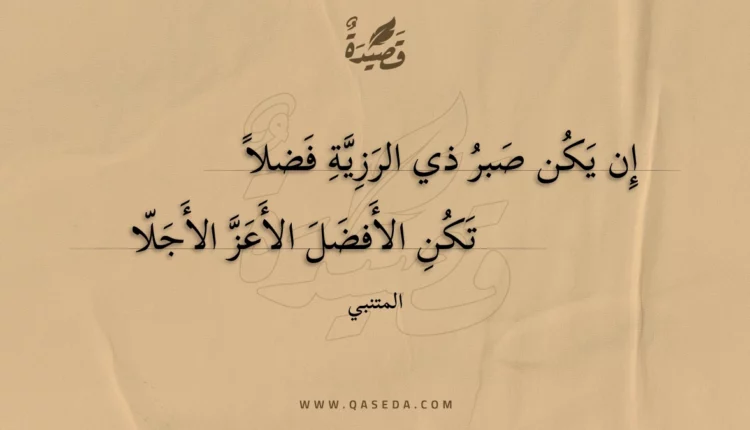 قَصِيدَةٌ
إِن يَكُن صَبرُ ذي الرَزِيَّةِ فَضلاً
تَكُنِ الأَفضَلَ الأَعَزَّ الأَجَلّا
المتنبي
WWW.QASEDA.COM